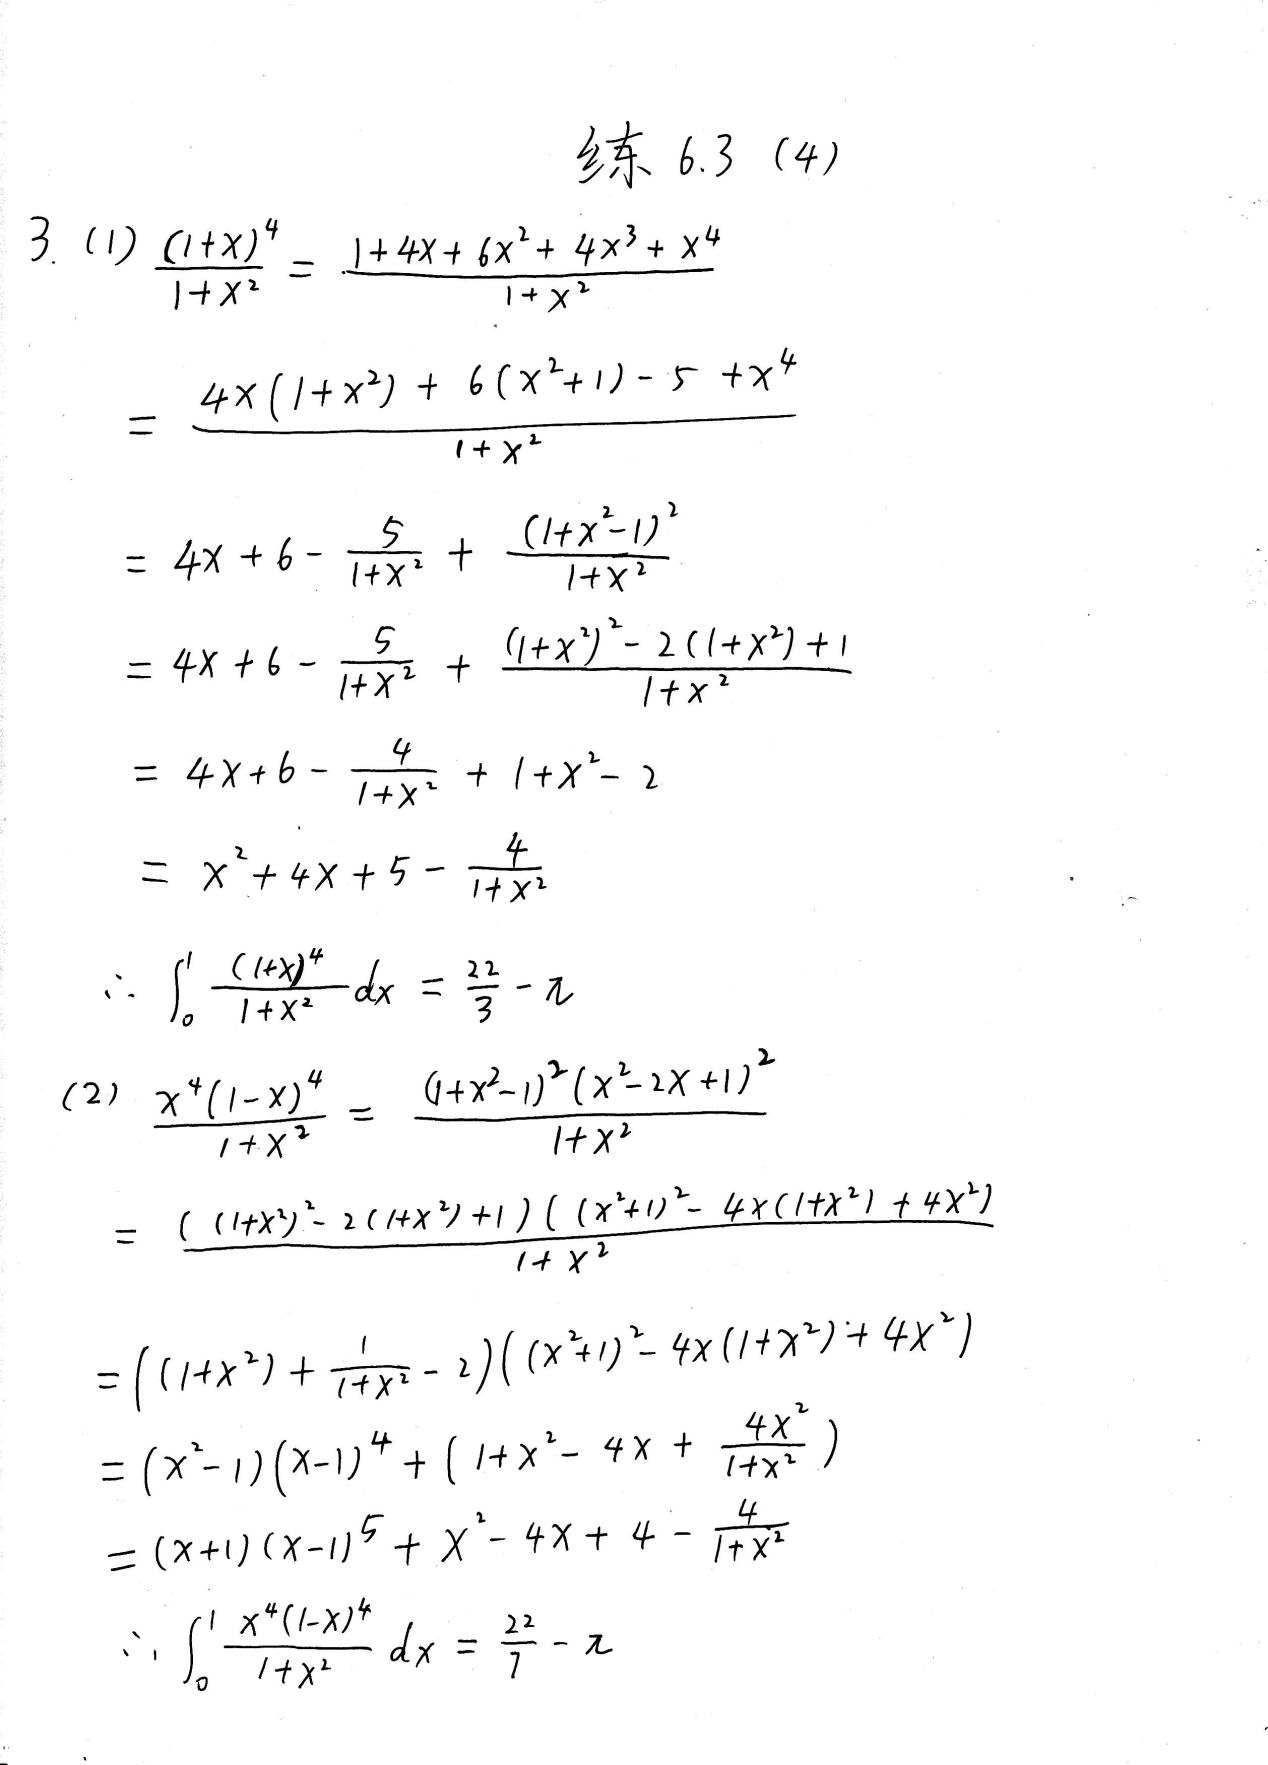 练 6.3 (4)
3. (1) \frac{(1+x)^4}{1+x^2} = \frac{1+4x+6x^2+4x^3+x^4}{1+x^2}
= \frac{4x(1+x^2)+6(x^2+1)-5+x^4}{1+x^2}
= 4x+6-\frac{5}{1+x^2}+\frac{(1+x^2-1)^2}{1+x^2}
= 4x+6-\frac{5}{1+x^2}+\frac{(1+x^2)^2-2(1+x^2)+1}{1+x^2}
= 4x+6-\frac{4}{1+x^2}+1+x^2-2
= x^2+4x+5-\frac{4}{1+x^2}
∴ \int_0^1 \frac{(1+x)^4}{1+x^2} dx = \frac{22}{3}-π
(2) \frac{x^4(1-x)^4}{1+x^2} = \frac{(1+x^2-1)^2(x^2-2x+1)^2}{1+x^2}
= \frac{((1+x^2)^2-2(1+x^2)+1)((x^2+1)^2-4x(1+x^2)+4x^2)}{1+x^2}
= ((1+x^2)+\frac{1}{1+x^2}-2)((x^2+1)^2-4x(1+x^2)+4x^2)
= (x^2-1)(x-1)^4+(1+x^2-4x+\frac{4x^2}{1+x^2})
= (x+1)(x-1)^5+x^2-4x+4-\frac{4}{1+x^2}
∴ \int_0^1 \frac{x^4(1-x)^4}{1+x^2} dx = \frac{22}{7}-π